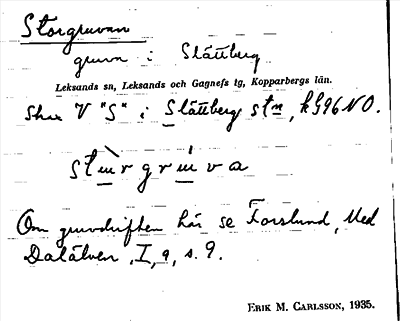 Storgruvan
gruva i Slättberg
Leksands sn, Leksands och Gagnefs tg, Kopparbergs län.
V "S" i Slättberg stn, k G96NO.
Om gruvdriften här se Forslund, Med
Dalälven, I, 9, s. 9.
ERIK M. CARLSSON, 1935.